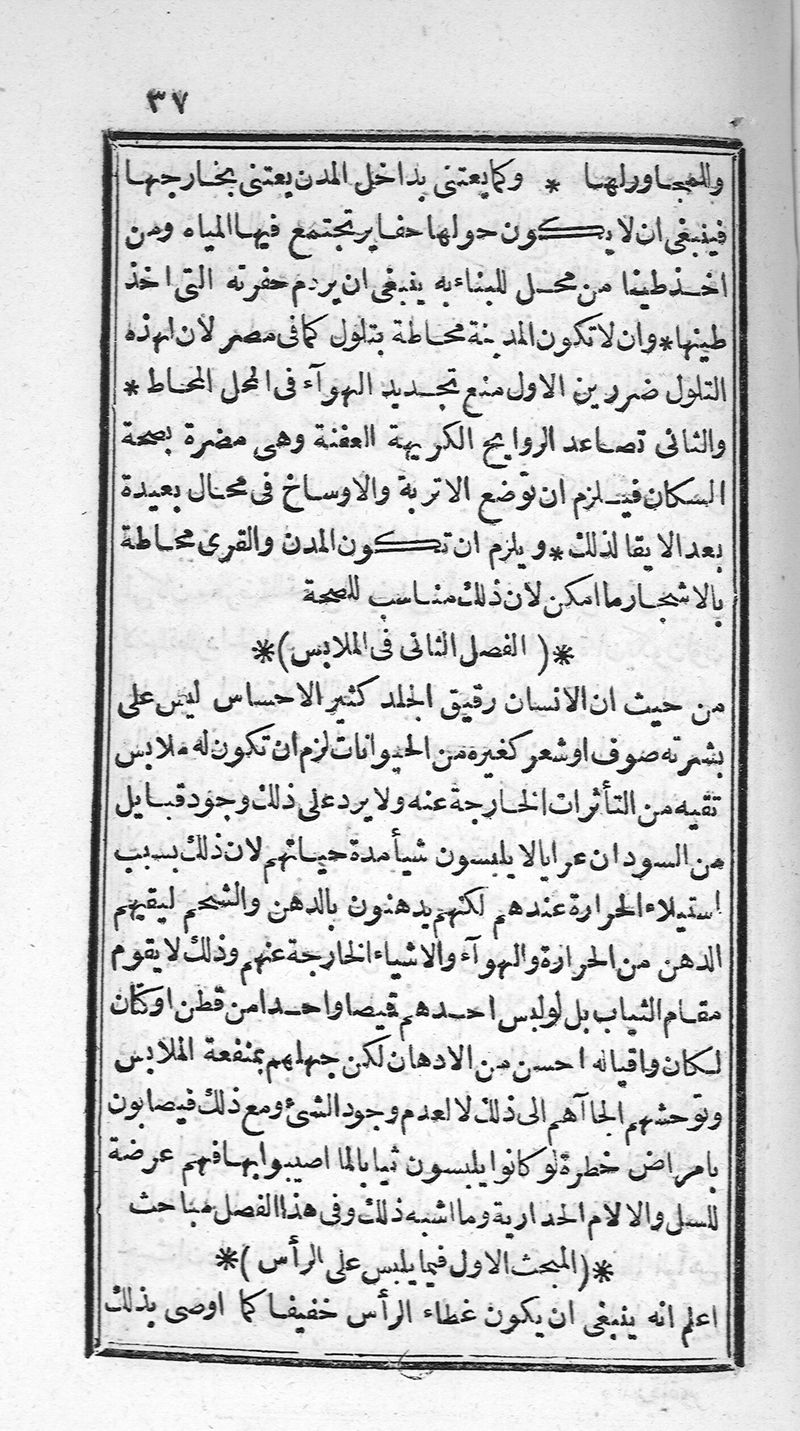 ٣٧
والمجاور لها * وكما يعتنى بداخل المدن يعتنى بخارجها
فينبغى ان لا يكون حولها حفاير تجتمع فيها المياه ومن
اخذ طينا من محل للبناء به ينبغى ان يردم حفرته التى اخذ
طينها * وان لا تكون المدينة محاطة بتلول كما فى مصر لان لهذه
التلول ضررين الاول منع تجديد الهوآء فى المحل المحاط *
والثانى تصاعد الروايح الكريهة العفنة وهى مضرة بصحة
السكان فيلزم ان توضع الاتربة والاوساخ فى محال بعيدة
بعدا لايقا لذلك * ويلزم ان تكون المدن والقرى محاطة
بالاشجار ما امكن لان ذلك مناسب للصحة
*( الفصل الثانى فى الملابس )*
من حيث ان الانسان رقيق الجلد كثير الاحساس ليس على
بشرته صوف او شعر كغيره من الحيوانات لزم ان تكون له ملابس
تقيه من التأثرات الخارجة عنه ولا يرد على ذلك وجود قبايل
من السودان عرايا لا يلبسون شيأ مدة حياتهم لان ذلك بسبب
استيلاء الحرارة عندهم لكنهم يدهنون بالدهن والشحم ليقيهم
الدهن من الحرارة والهوآء والاشياء الخارجة عنهم وذلك لا يقوم
مقام الثياب بل لو لبس احدهم قيصا واحدا من قطن او كتان
لكان واقيا له احسن من الادهان لكن جهلهم بمنفعة الملابس
وتوحشهم الجاآهم الى ذلك لا لعدم وجود الشئ ومع ذلك فيصابون
بامراض خطرة لو كانوا يلبسون ثيابا لما اصيبوا بها فهم عرضة
للسل والالام الحدارية وما اشبه ذلك وفى هذا الفصل مباحث
*( المبحث الاول فيما يلبس على الرأس )*
اعلم انه ينبغى ان يكون غطاء الرأس خفيفا كما اوصى بذلك